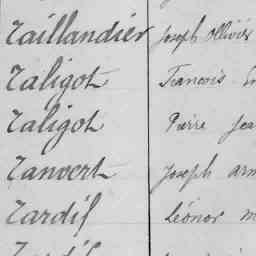 Taillandier Joseph Ollivier
Taligot Francois
Taligot Pierre
Tanvert Joseph
Tardif Léonor